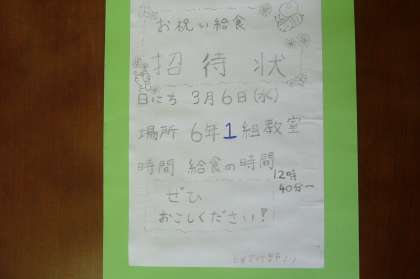 お祝い給食
招待状
日にち 3月6日(水)
場所 6年1組教室
時間 給食の時間
12時
40分~
ぜひ
おこしください!